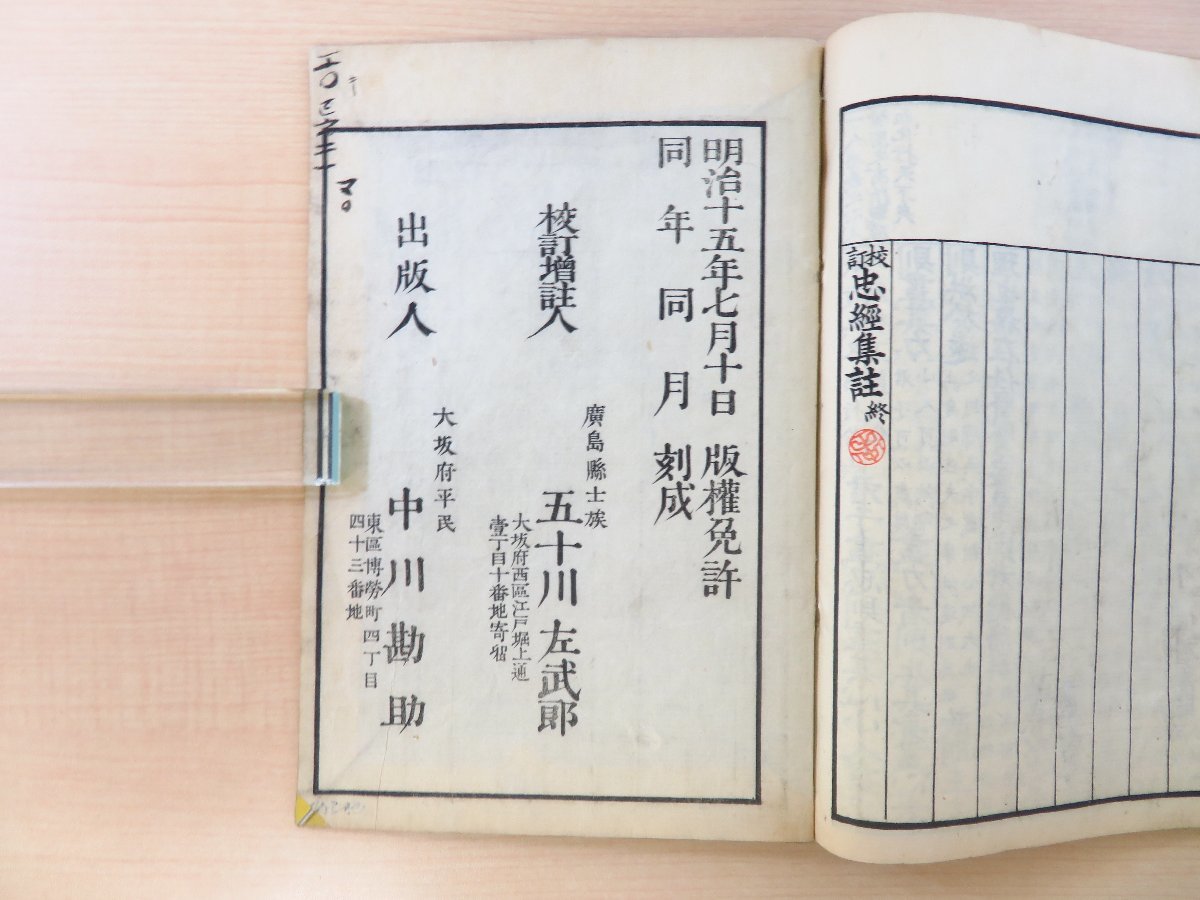 校訂忠經集註終
明治十五年七月十日版權免許
同年同月刻成
校訂增註人
廣島縣士族
五十川左武郎
大坂府西區江戸堀上通
壹丁目十番地寄留
出版人
大坂府平民
中川勘助
東區博勞町四丁目
四十三番地